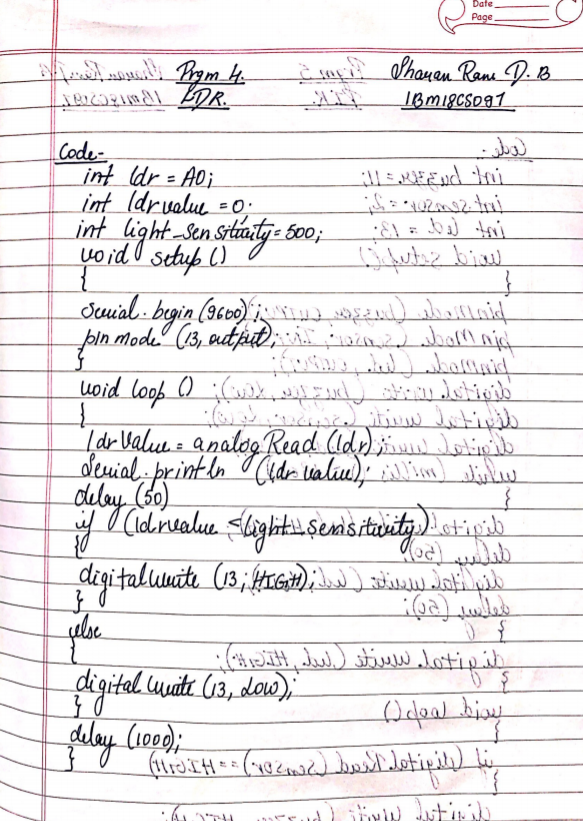 Date
Page
Prgm 4. Sharan Ram D. B
LDR. 1BM18CS097
Code-
int ldr = A0;
int ldrvalue = 0;
int light_sensitivity = 500;
void setup ()
{
Serial.begin (9600);
pin mode (13, output);
}
void loop ()
{
ldrValue = analogRead (ldr);
Serial.println (ldrvalue);
delay (50)
if (ldrvalue < light_sensitivity)
{
digitalwrite (13, HIGH);
}
else
{
digitalwrite (13, Low);
}
delay (1000);
}